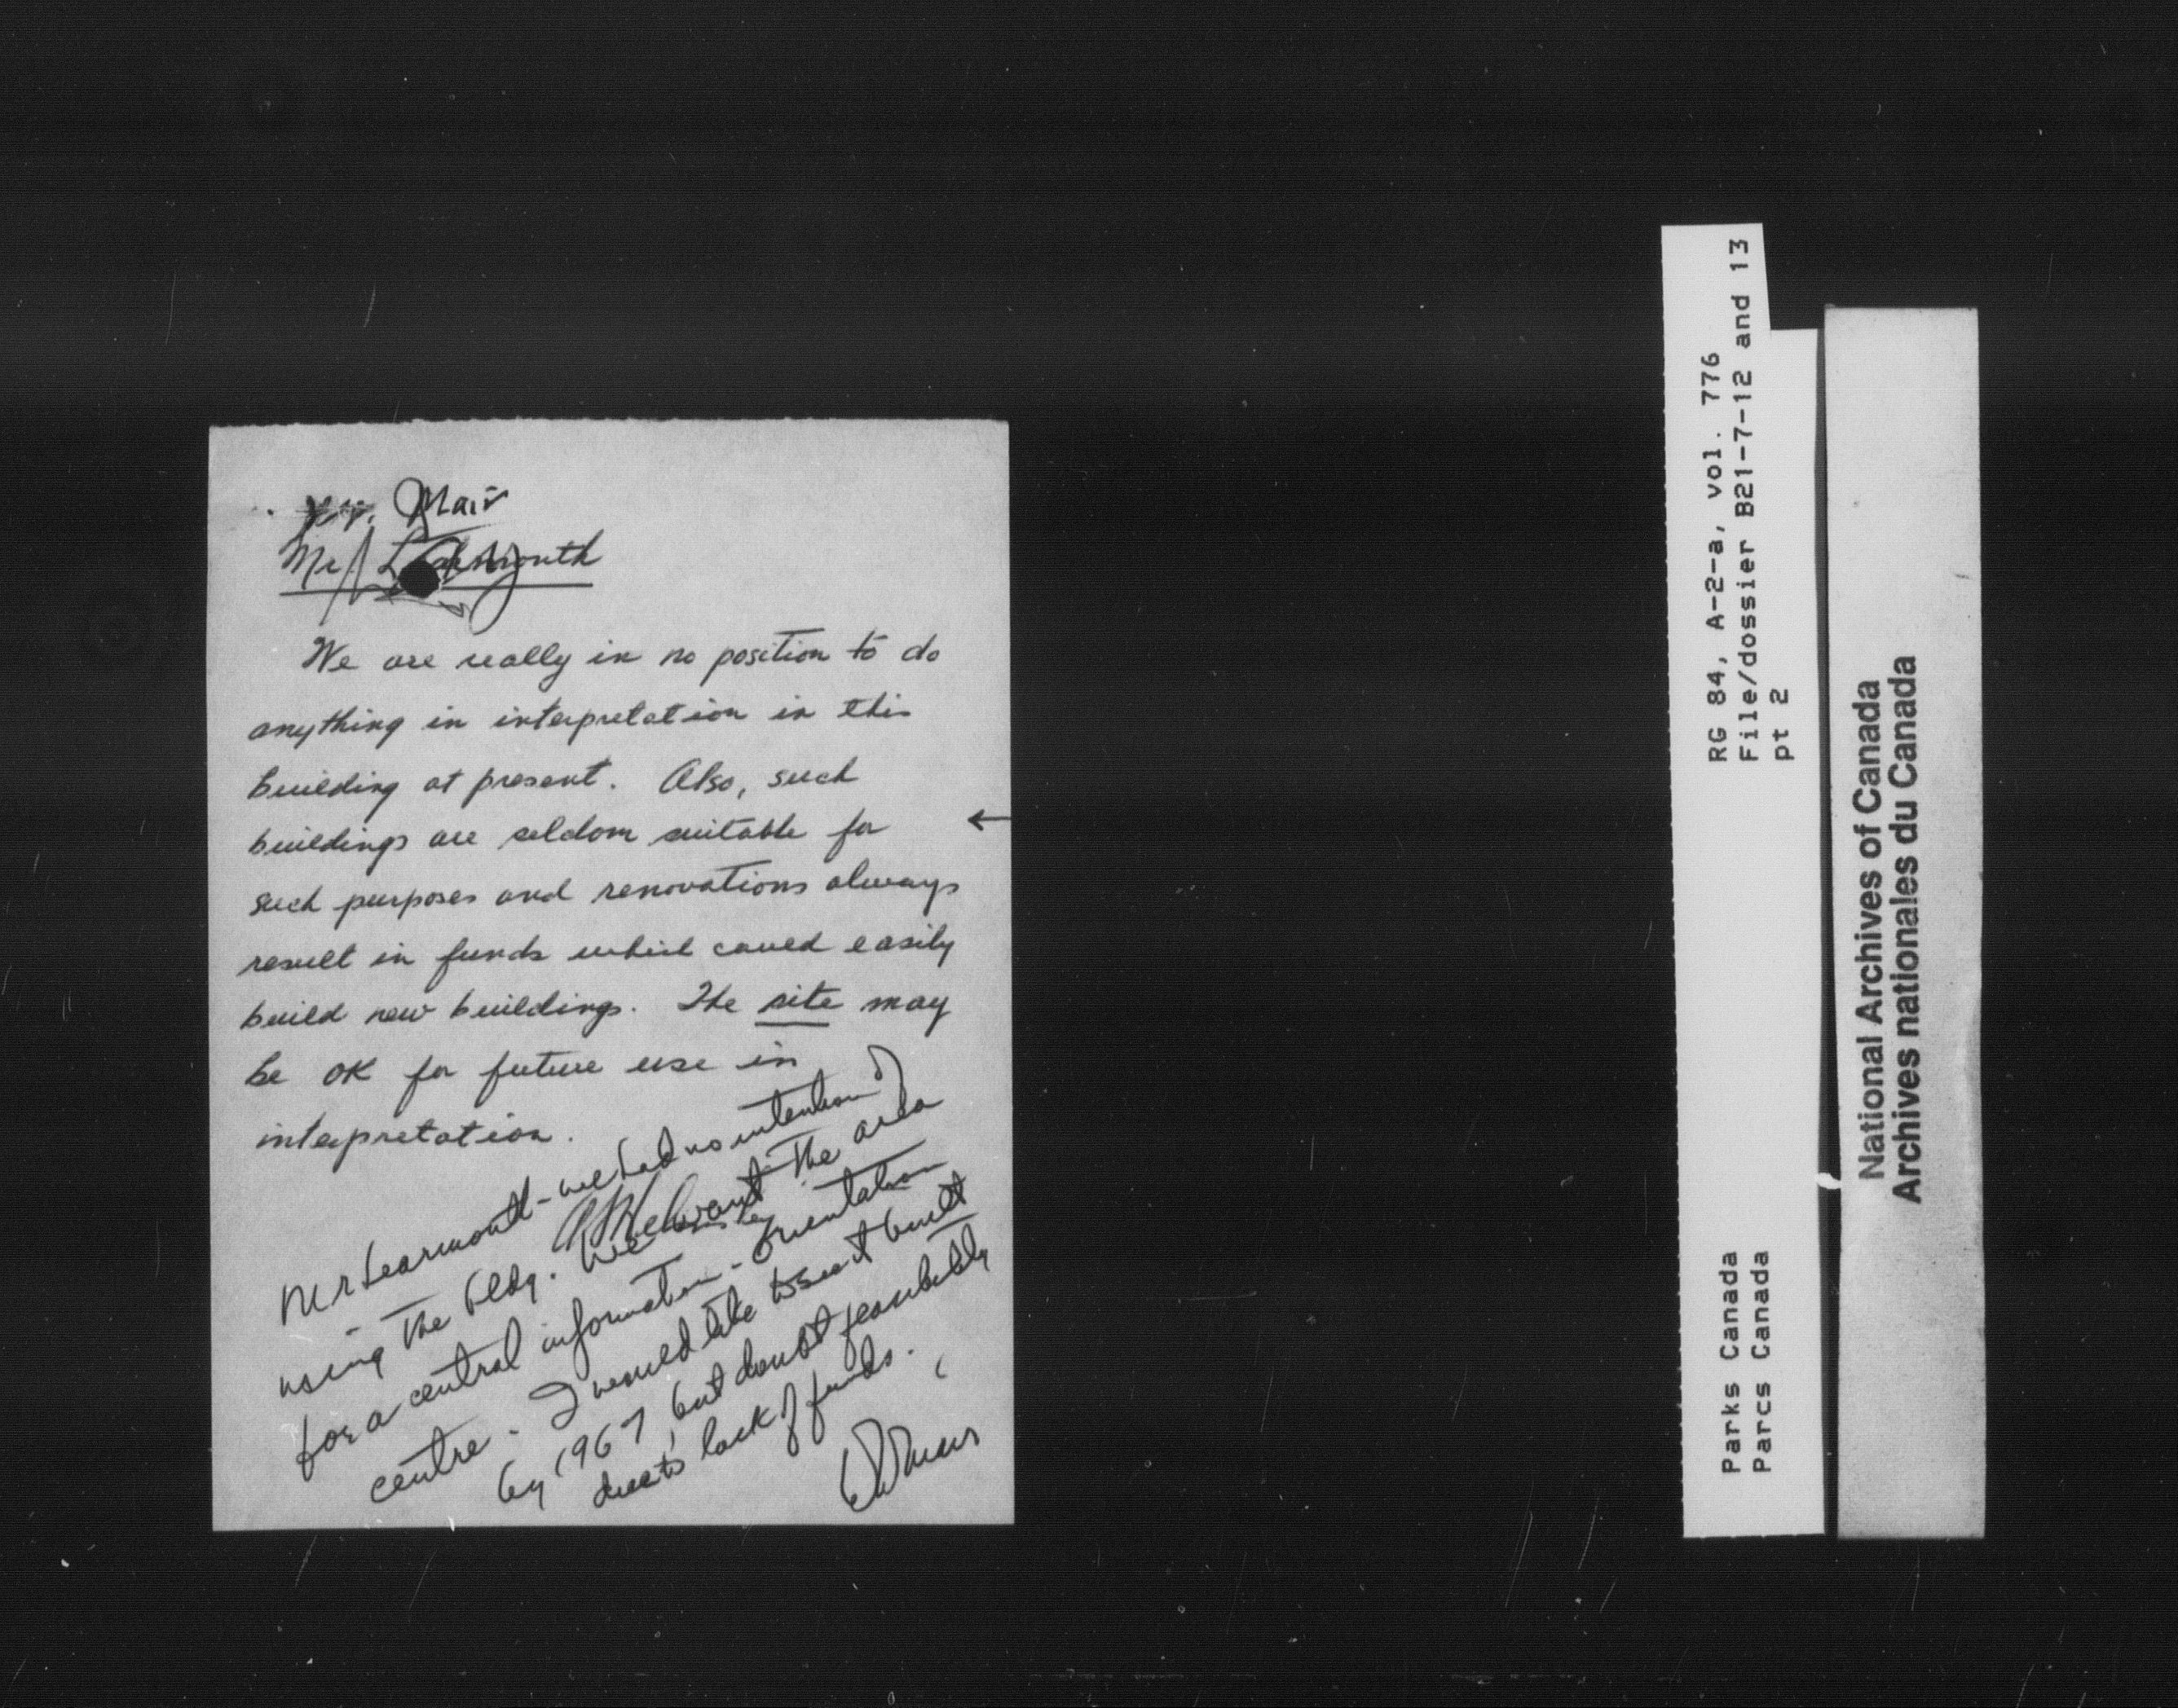 Mr. Mair
Mr. Learmonth
We are really in no position to do
anything in interpretation in this
building at present. Also, such
buildings are seldom suitable for
such purposes and renovations always
result in funds which could easily
build new buildings. The site may
be OK for future use in
interpretation.
Mr Learmonth - we had no intention of
using the bldg. We want the area
for a central information - orientation
centre. I would like to see it built
by 1967, but doubt feasibility
due to lack of funds.
RG 84, A-2-a, vol. 776
File/dossier B21-7-12 and 13
pt 2
Parks Canada
Parcs Canada
National Archives of Canada
Archives nationales du Canada